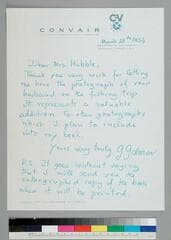 CV
CONVAIR
March 28th 1956
Dear Mrs Hubble,
Thank you very much for letting
me have the photograph of your
husband on the fishing trip.
It represents a valuable
addition to other photographs
which I plan to include
into my book.
Yours very truly
P.S. It goes without saying
that I will send you an
autographed copy of the book
when it will be printed.